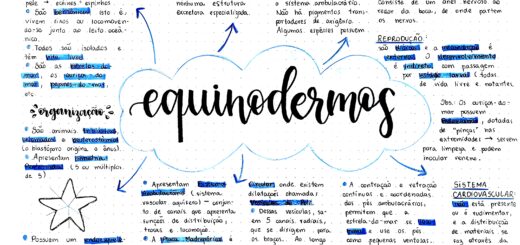 pole → echinos = espinhos
• São bentônicos isto é,
vivem fixos ou locomoven-
do-se junto ao leito oceâ-
nico.
• Todos são isolados e
têm vida livre
• São as estrelas do-
mar, os ouriços do-
mar, pepinos do-mar,
etc
organização
• São animais triblásticos,
celomados e deuterostômios
(o blastóporo origina o ânus).
• Apresentam simetria
(5 ou múltiplos
de 5)
• Possuem um endoesquele
nenhuma estrutura
excretora especializada.
o sistema ambulacrário.
Não há pigmentos trans-
portadores de oxigênio.
Algumas espécies possuem
consiste de um anel nervoso ao
redor da boca, de onde partem
os nervos.
REPRODUÇÃO:
são dioicos e a fecundação é
externa. O desenvolvimento
é indireto com passagem
por estágio larval (todas
de vida livre e natantes.
equinodermos
Obs: Os ouriços-do-
mar possuem
dotadas
de "pinças" nas
extremidades → servem
para limpeza e podem
inocular veneno.
• Apresentam Sistema
Ambulacrário (sistema
vascular aquífero) – conjun-
to de canais que apresenta
funções de distribuição,
trocas e locomoção.
• A placa madrepórica é
circular, onde existem
dilatações chamadas
vesículas de Poli.
• Dessas vesículas, sa-
em 5 canais radiais,
que se dirigem para
os braços. Ao longo
• A contração e retração
contínuas e coordenadas
dos pés ambulacrários,
permitem que a
estrela-do-mar se loco-
e use os pés
como pequenas ventosas
SISTEMA
CARDIOVASCULAR:
não está presente
ou é rudimentar,
e a distribuição
de materiais se
faz através da